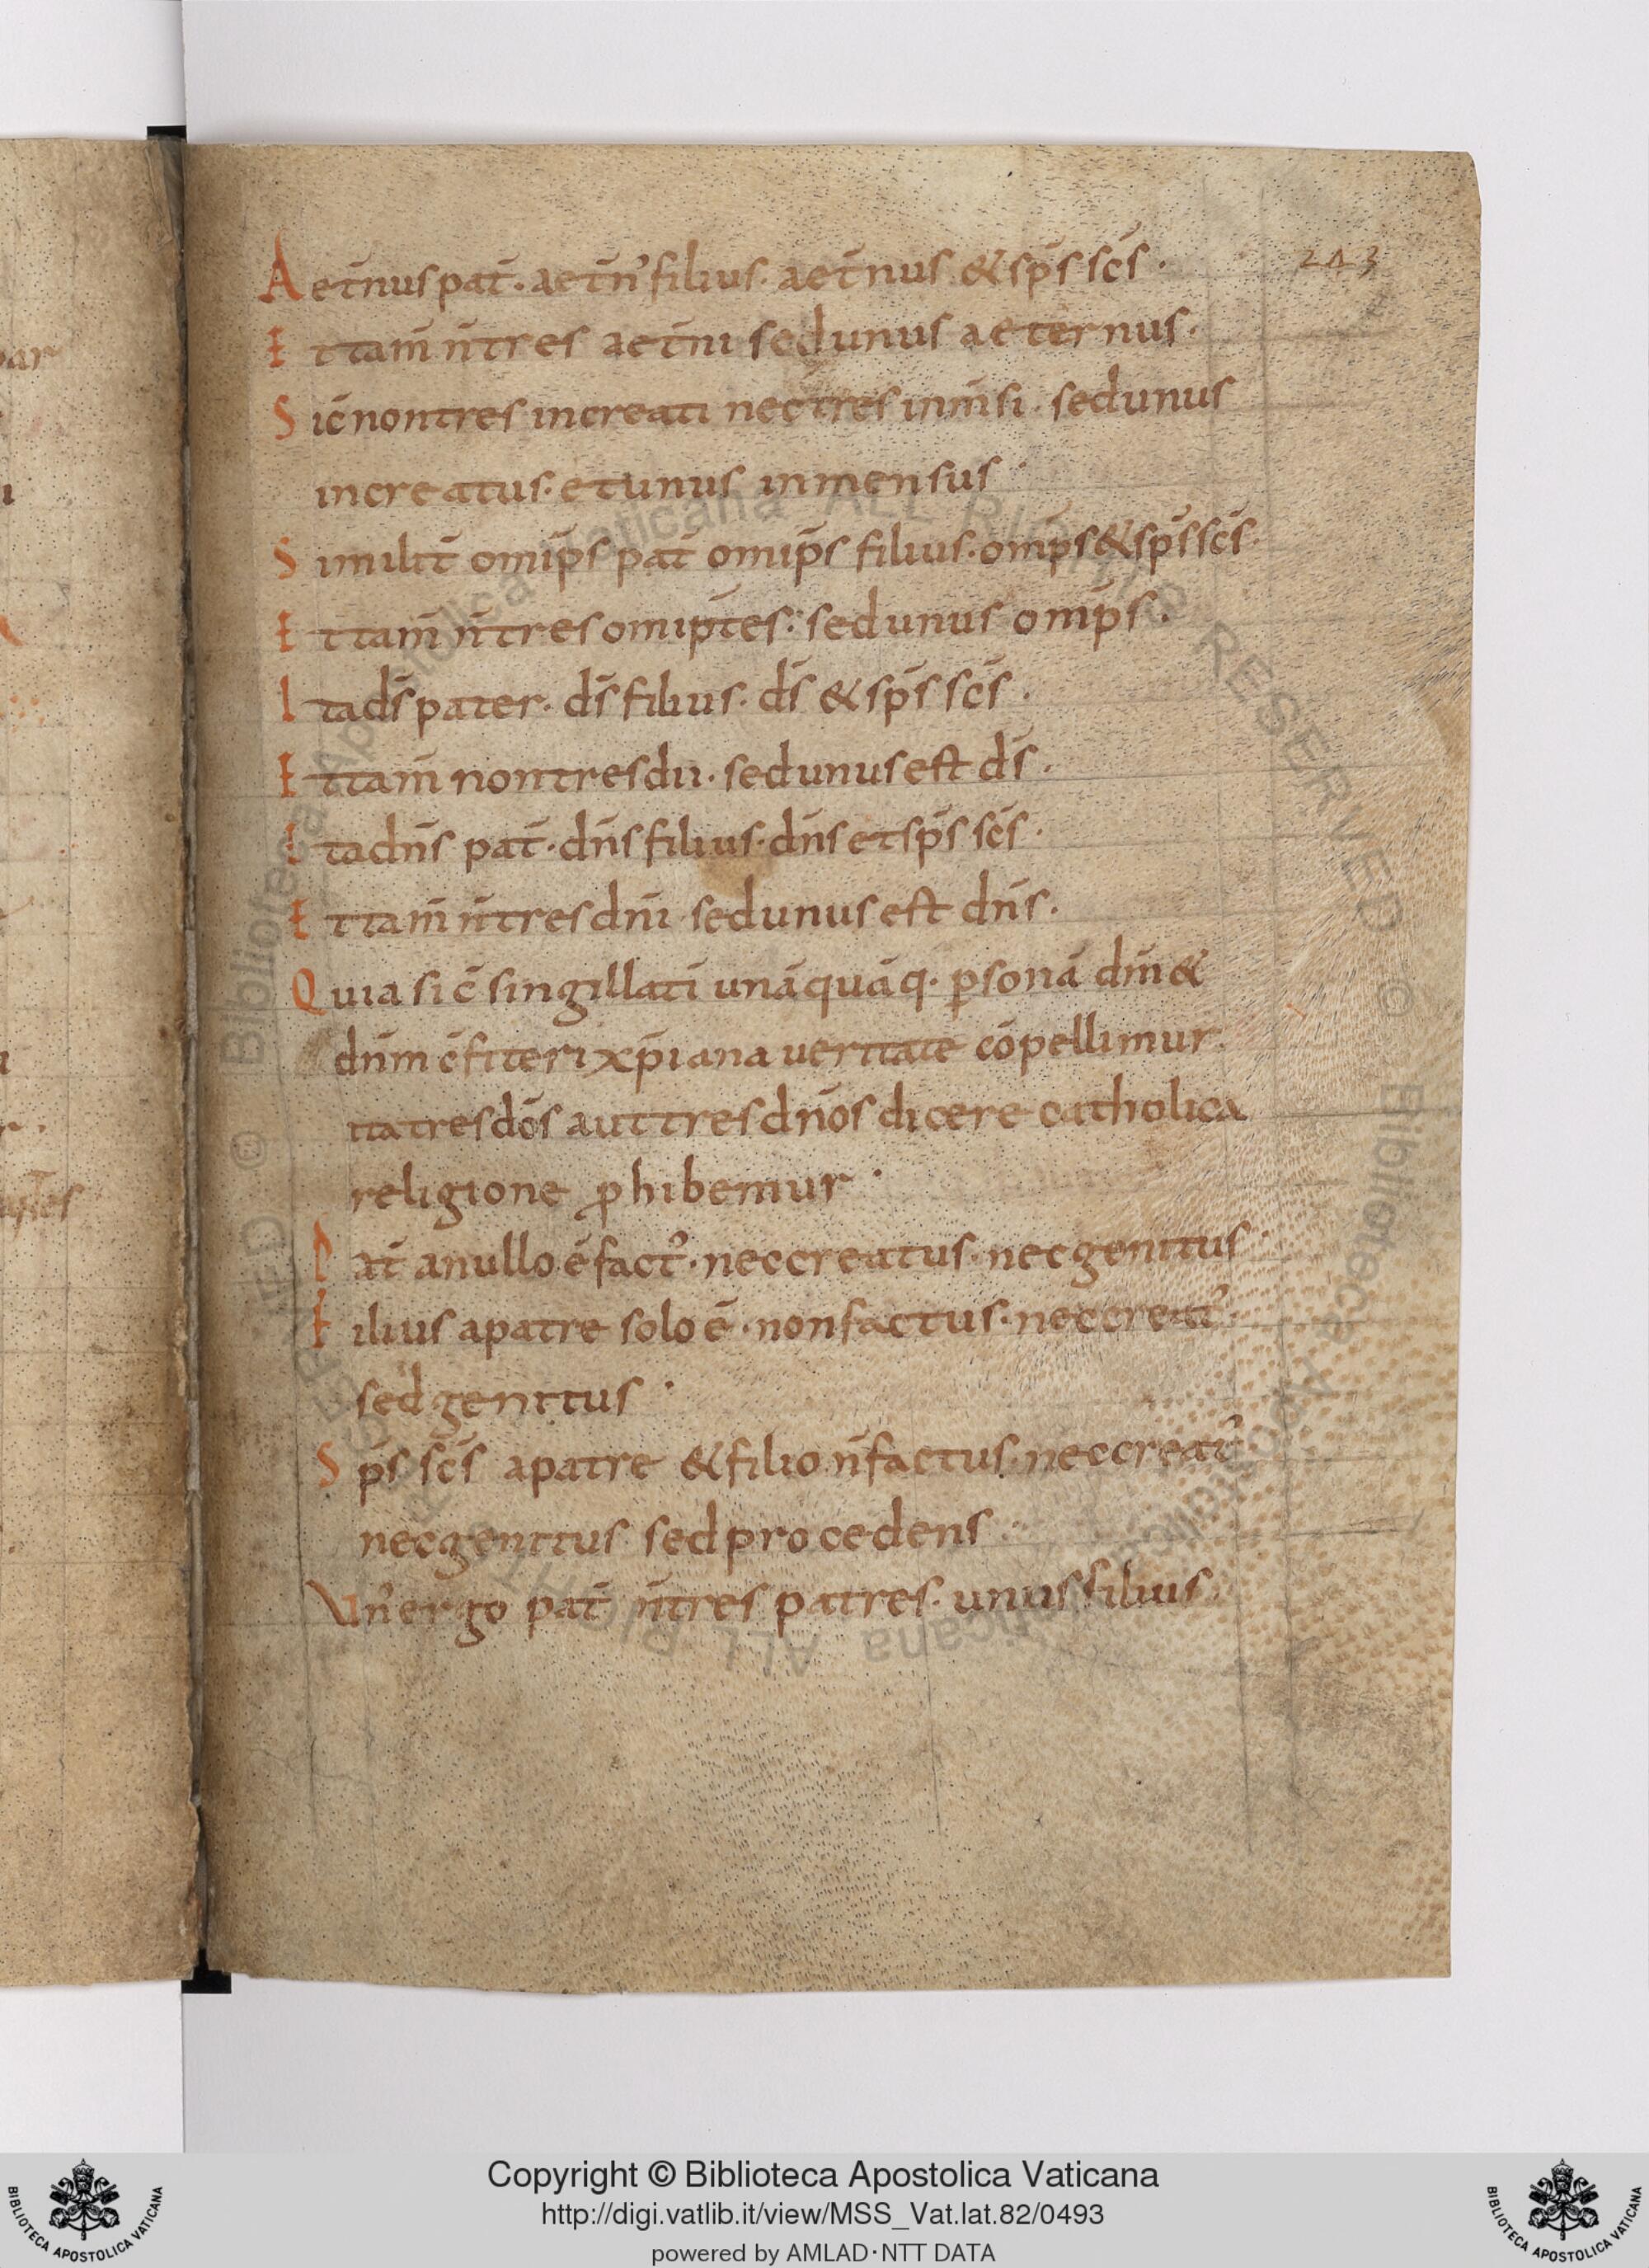 Aet̄nus pat̄. aet̄n᾽ filius. aet̄nus & sp̄s sc̄s. 243
Et tam̄ n̄ tres aet̄ni sed unus aeternus.
Sic̄ non tres increati nec tres inm̄si. sed unus
increatus. et unus inmensus.
Similit̄ omip̄s pat̄ omip̄s filius. omp̄s & sp̄s sc̄s.
Et tam̄ n̄ tres omip̄tes: sed unus omp̄s.
Ita d̄s pater. d̄s filius. d̄s & sp̄s sc̄s.
Et tam̄ non tres dii. sed unus est d̄s.
Ita dn̄s pat̄. dn̄s filius. dn̄s et sp̄s sc̄s.
Et tam̄ n̄ tres dn̄i sed unus est dn̄s.
Quia sic̄ singillatī unā quāq. ꝑsonā dm̄ &
dn̄m c̄fiteri xp̄iana ueritate cōpellimur.
ita tres dōs aut tres dn̄os dicere catholica
religione ꝓhibemur.
Pat̄ a nullo ē fact᾽. nec creatus. nec genitus.
Filius a patre solo ē. non factus. nec creat᾽.
sed genitus.
Sp̄s sc̄s a patre & filio n̄ factus. nec creat᾽.
nec genitus sed procedens.
Un᾽ ergo pat̄ n̄ tres patres. unus filius.
Copyright © Biblioteca Apostolica Vaticana
http://digi.vatlib.it/view/MSS_Vat.lat.82/0493
powered by AMLAD·NTT DATA
BIBLIOTECA APOSTOLICA VATICANA
BIBLIOTECA APOSTOLICA VATICANA